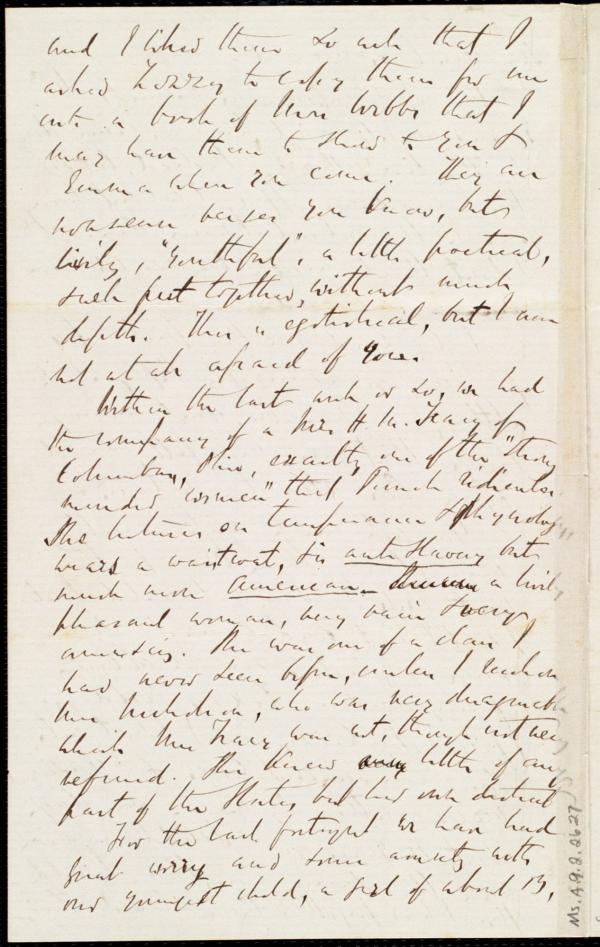 and I liked them so much that I
asked Lizzy to copy them for me
into a book of Miss Webbs that I
may have them to show to you &
Emma when you come. They are
nonsense verses you know, but
lively, "youthful", a little poetical,
well put together, without much
depth. This is egotistical, but I am
not at all afraid of you.
Within the last week or so, we had
the company of a Mrs H. M. Tracy of
Columbus, Ohio, exactly one of the "strong
minded women" that Punch ridicules
She lectures on temperance & Physiology,
wears a waistcoat, is anti Slavery but
much more American - a lively
pleasant woman, very vain & very
amusing. She was one of a class I
had never seen before, unless I reckon
Mrs Nicholson, who was very disagreeable
which Mrs Tracy was not, though not very
refined. She knew little of any
part of the States, but her own district
For the last fortnight we have had
great worry and some anxiety with
our youngest child, a girl of about 13,
Ms. A.9.2.26.27